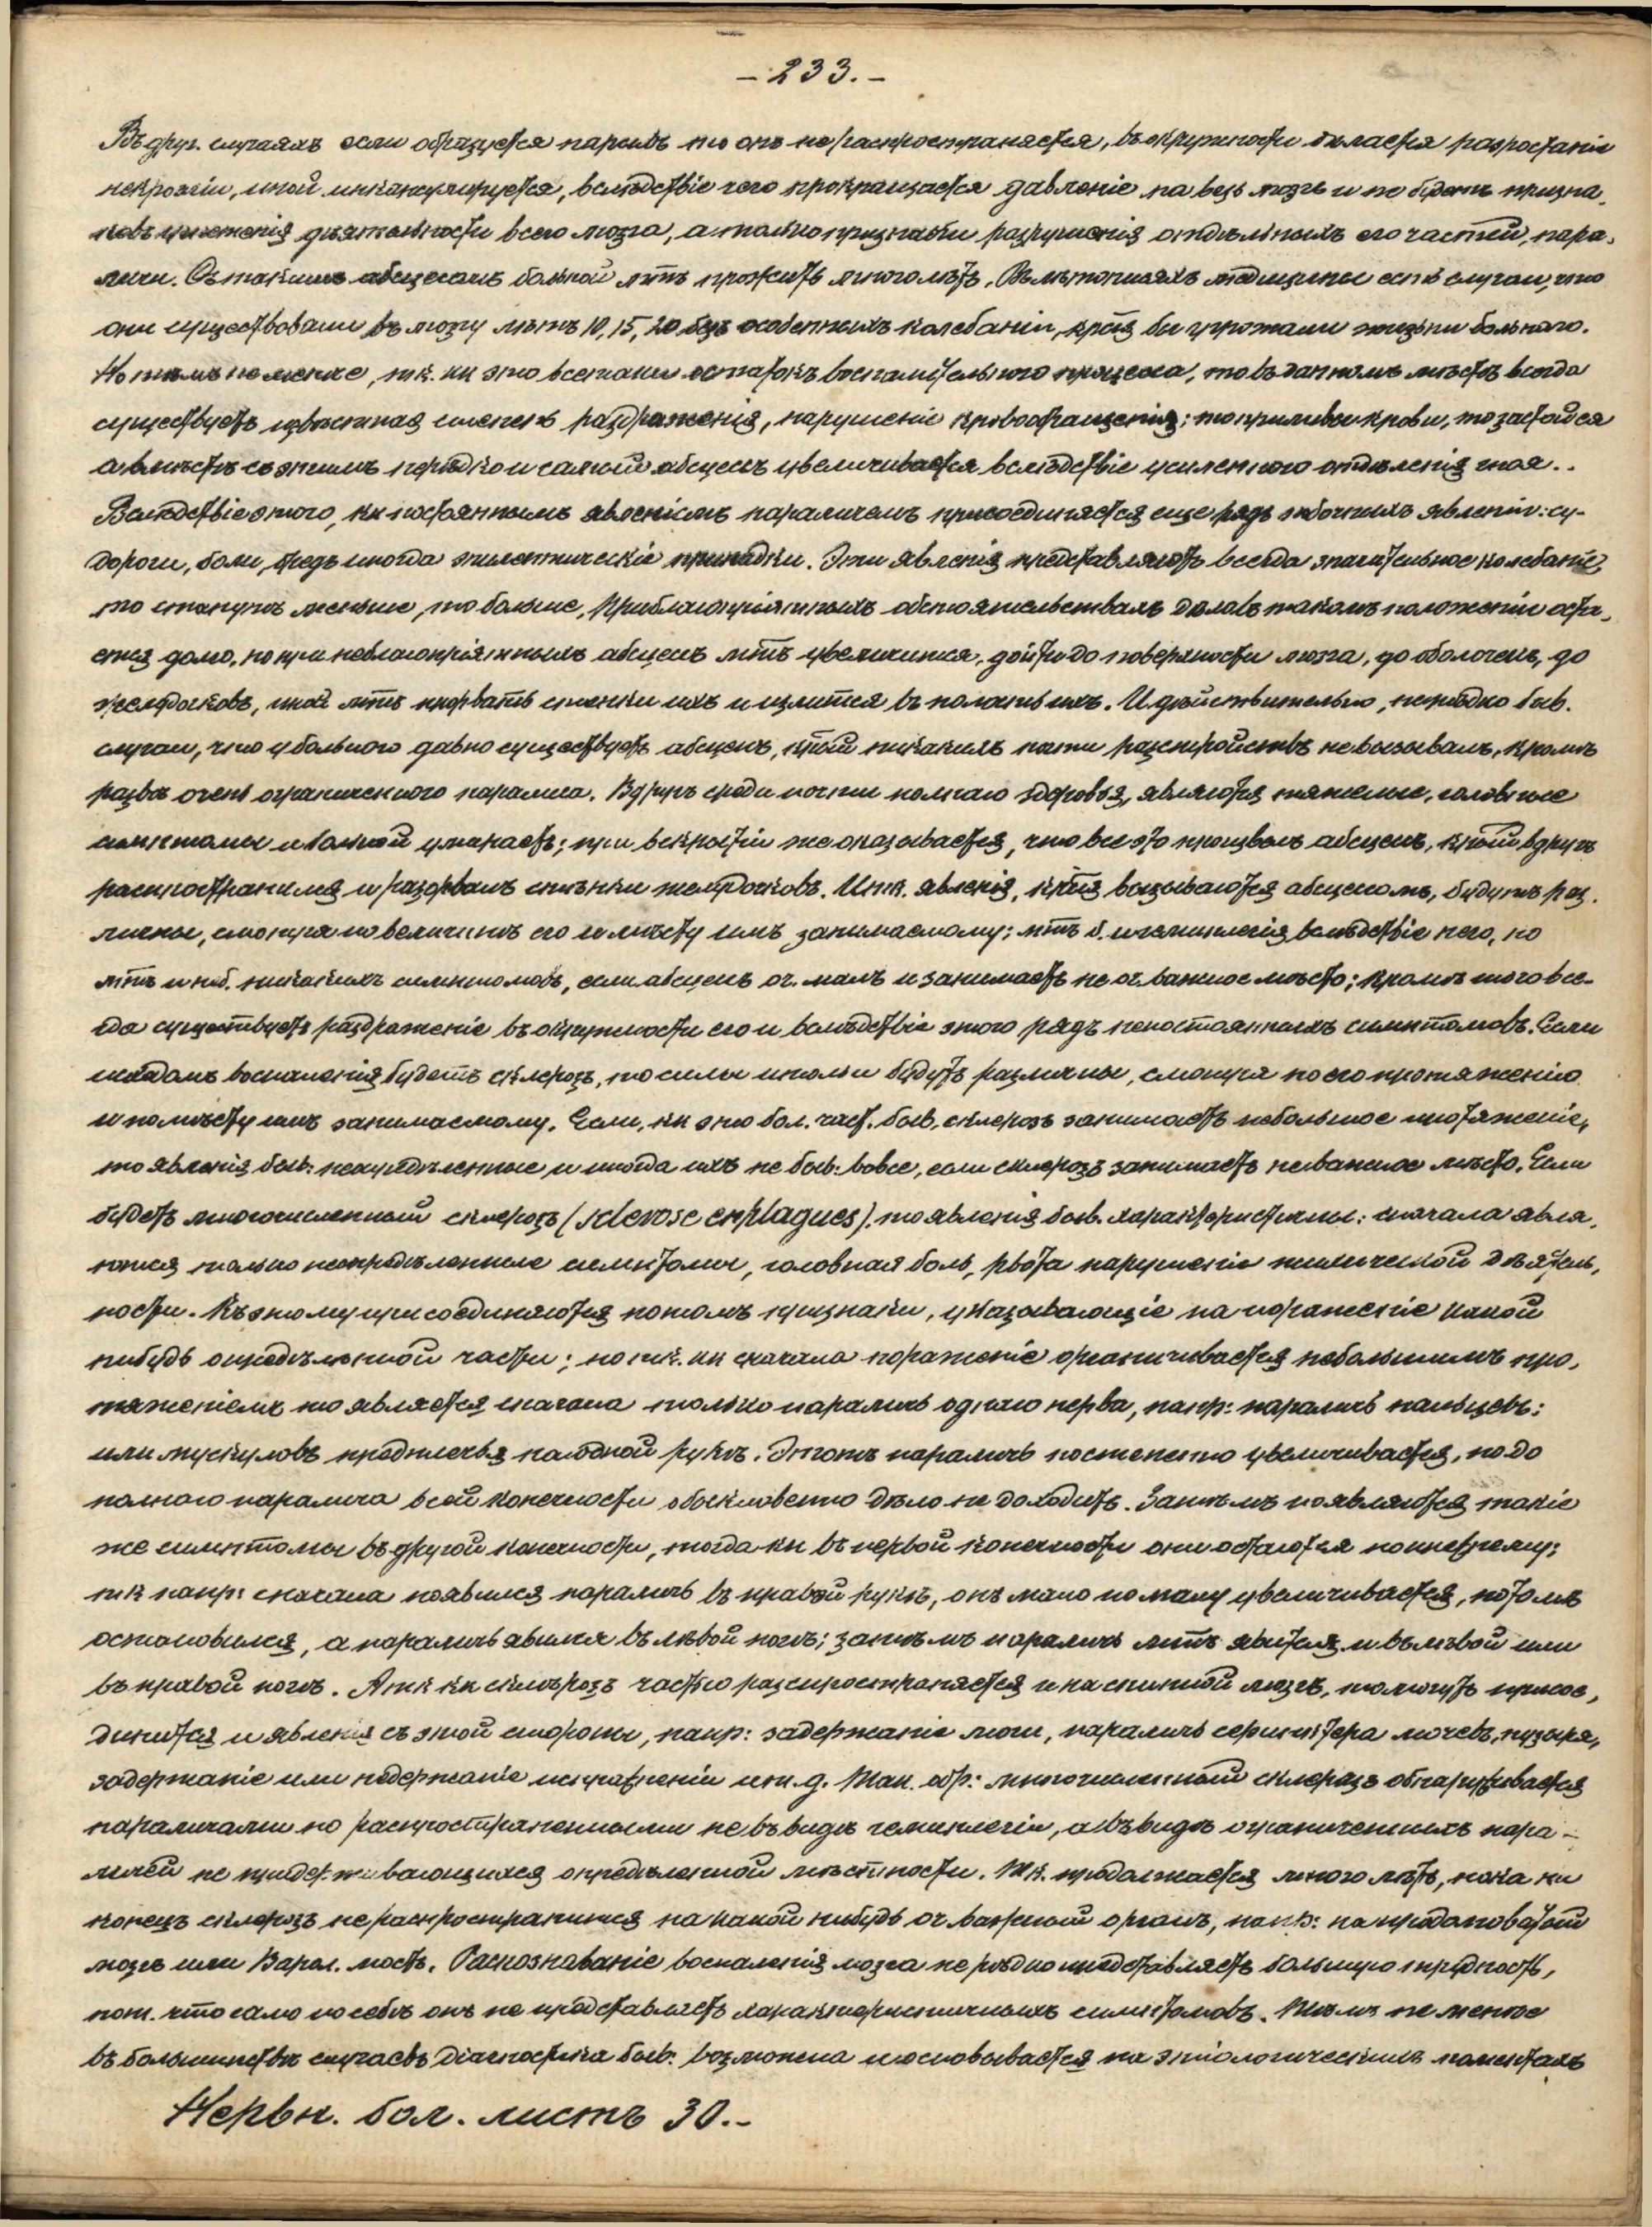 – 233. –
Въ друг. случаяхъ если образуется нарывъ то онъ не распространяется, въ окружности дѣлается разростаніе
невроглiи, иной инкапсулируется, вслѣдствіе чего прекращается давленіе на весь мозгъ и не будетъ призна-
ковъ угнетенія дѣятельности всего мозга, а только признаки разрушенія отдѣльныхъ его частей, пара-
личи. Съ такимъ абсцесомъ больной мтъ прожить много лѣтъ. Въ лѣтописяхъ медицины есть случаи, что
они существовали въ мозгу лѣтъ 10, 15, 20 безъ особенныхъ колебаній, крыя бы угрожали жизни больнаго.
Но тѣмъ не менѣе, тк. кк это всетаки остатокъ воспалительнаго процесса, то въ данномъ мѣстѣ всегда
существуетъ извѣстная степень раздраженія, нарушеніе кровообращенія; то приливы крови, то застойся
а вмѣстѣ съ этимъ нерѣдко и самый абсцесъ увеличивается вслѣдствіе усиленнаго отдѣленія гноя..
Вслѣдствіе этого, кк постояннымъ явленіемъ параличемъ присоединяется еще рядъ побочныхъ явленій: су-
дороги, боли, бредъ иногда эпилептическіе припадки. Эти явленія представляютъ всегда значительное колебаніе,
то станутъ меньше, то больше. При благопріятныхъ обстоятельствахъ дѣло въ такомъ положеніи оста-
ется долго, но при неблагопріятныхъ абсцесъ мтъ увеличится, дойти до поверхности мозга, до оболочекъ, до
желудочковъ, иной мтъ прорвать стѣнки ихъ и излится въ полость ихъ. И дѣйствительно, нерѣдко быв.
случаи, что у больного давно существуетъ абсцесъ, крый никакихъ почти разстройствъ не вызывалъ, кромѣ
развѣ очень ограниченнаго паралича. Вдругъ среди почти полнаго здоровья, являются тяжелые, головные
симптомы и больной умираетъ; при вскрытіи же оказывается, что все это произвелъ абсцесъ, крый вдругъ
распространился и разорвалъ стѣнки желудочковъ. И тк. явленія, крыя вызываются абсцесомъ, будутъ раз-
личны, смотря по величинѣ его и мѣсту имъ занимаемому; мтъ б. и гемиплегія вслѣдствіе него, но
мтъ и не б. никакихъ симптомовъ, если абсцесъ оч. малъ и занимаетъ не оч. важное мѣсто; кромѣ того все-
гда существуетъ раздраженіе въ окружности его и вслѣдствіе этого рядъ непостоянныхъ симптомовъ. Если
исходомъ воспаленія будетъ склерозъ, то симптомы будутъ различны, смотря по его протяженію
и по мѣсту имъ занимаемому. Если, кк это бол. част. быв. склерозъ занимаетъ небольшое протяженіе,
то явленія быв: неопредѣленные и иногда ихъ не быв: вовсе, если склерозъ занимаетъ неважное мѣсто. Если
будетъ многочисленный склерозъ (sclerose en plaques), то явленія быв. характеристичны: сначала явля-
ются только неопредѣленные симптомы, головная боль, рвота нарушеніе психической дѣятель-
ности. Къ этому присоединяются потомъ признаки, указывающіе на пораженіе какой
нибудь опредѣленной части; но тк. кк сначала пораженіе ограничивается небольшимъ про-
тяженіемъ то является сначала только параличъ одного нерва, напр: параличъ пальцевъ:
или мускуловъ предплечья на одной рукѣ. Этотъ параличъ постепенно увеличивается, но до
полнаго паралича всей конечности обыкновенно дѣло не доходитъ. Затѣмъ появляются такіе
же симптомы въ другой конечности, тогда кк въ первой конечности они остаются попрежнему;
тк напр: сначала появился параличъ въ правой рукѣ, онъ мало по малу увеличивается, потомъ
остановился, а параличъ явился въ лѣвой ногѣ; затѣмъ параличъ мтъ явиться и въ лѣвой или
въ правой ногѣ. А тк кк склерозъ часто распространяется и на спинной мозгъ, то могутъ присое-
диниться и явленія съ этой стороны, напр: задержаніе мочи, параличъ сфинктера мочев. пузыря,
задержаніе или недержаніе испражненій и т. д. Так. обр: многочисленный склерозъ обнаруживается
параличами но распространенными не въ видѣ гемиплегіи, а въ видѣ ограниченныхъ пара-
личей не придерживающихся опредѣленной мѣстности. Тк. продолжается много лѣтъ, пока на
конецъ склерозъ не распространится на какой нибудь оч. важный органъ, напр: на продолговатый
мозгъ или Варол. мостъ. Распознаваніе воспаленія мозга не рѣдко представляетъ большую трудность,
пот. что само по себѣ онъ не представляетъ характеристичныхъ симптомовъ. Тѣмъ не менѣе
въ большинствѣ случаевъ діагностика быв: возможна и основывается на этіологическихъ моментахъ
Нервн. бол. листъ 30.–